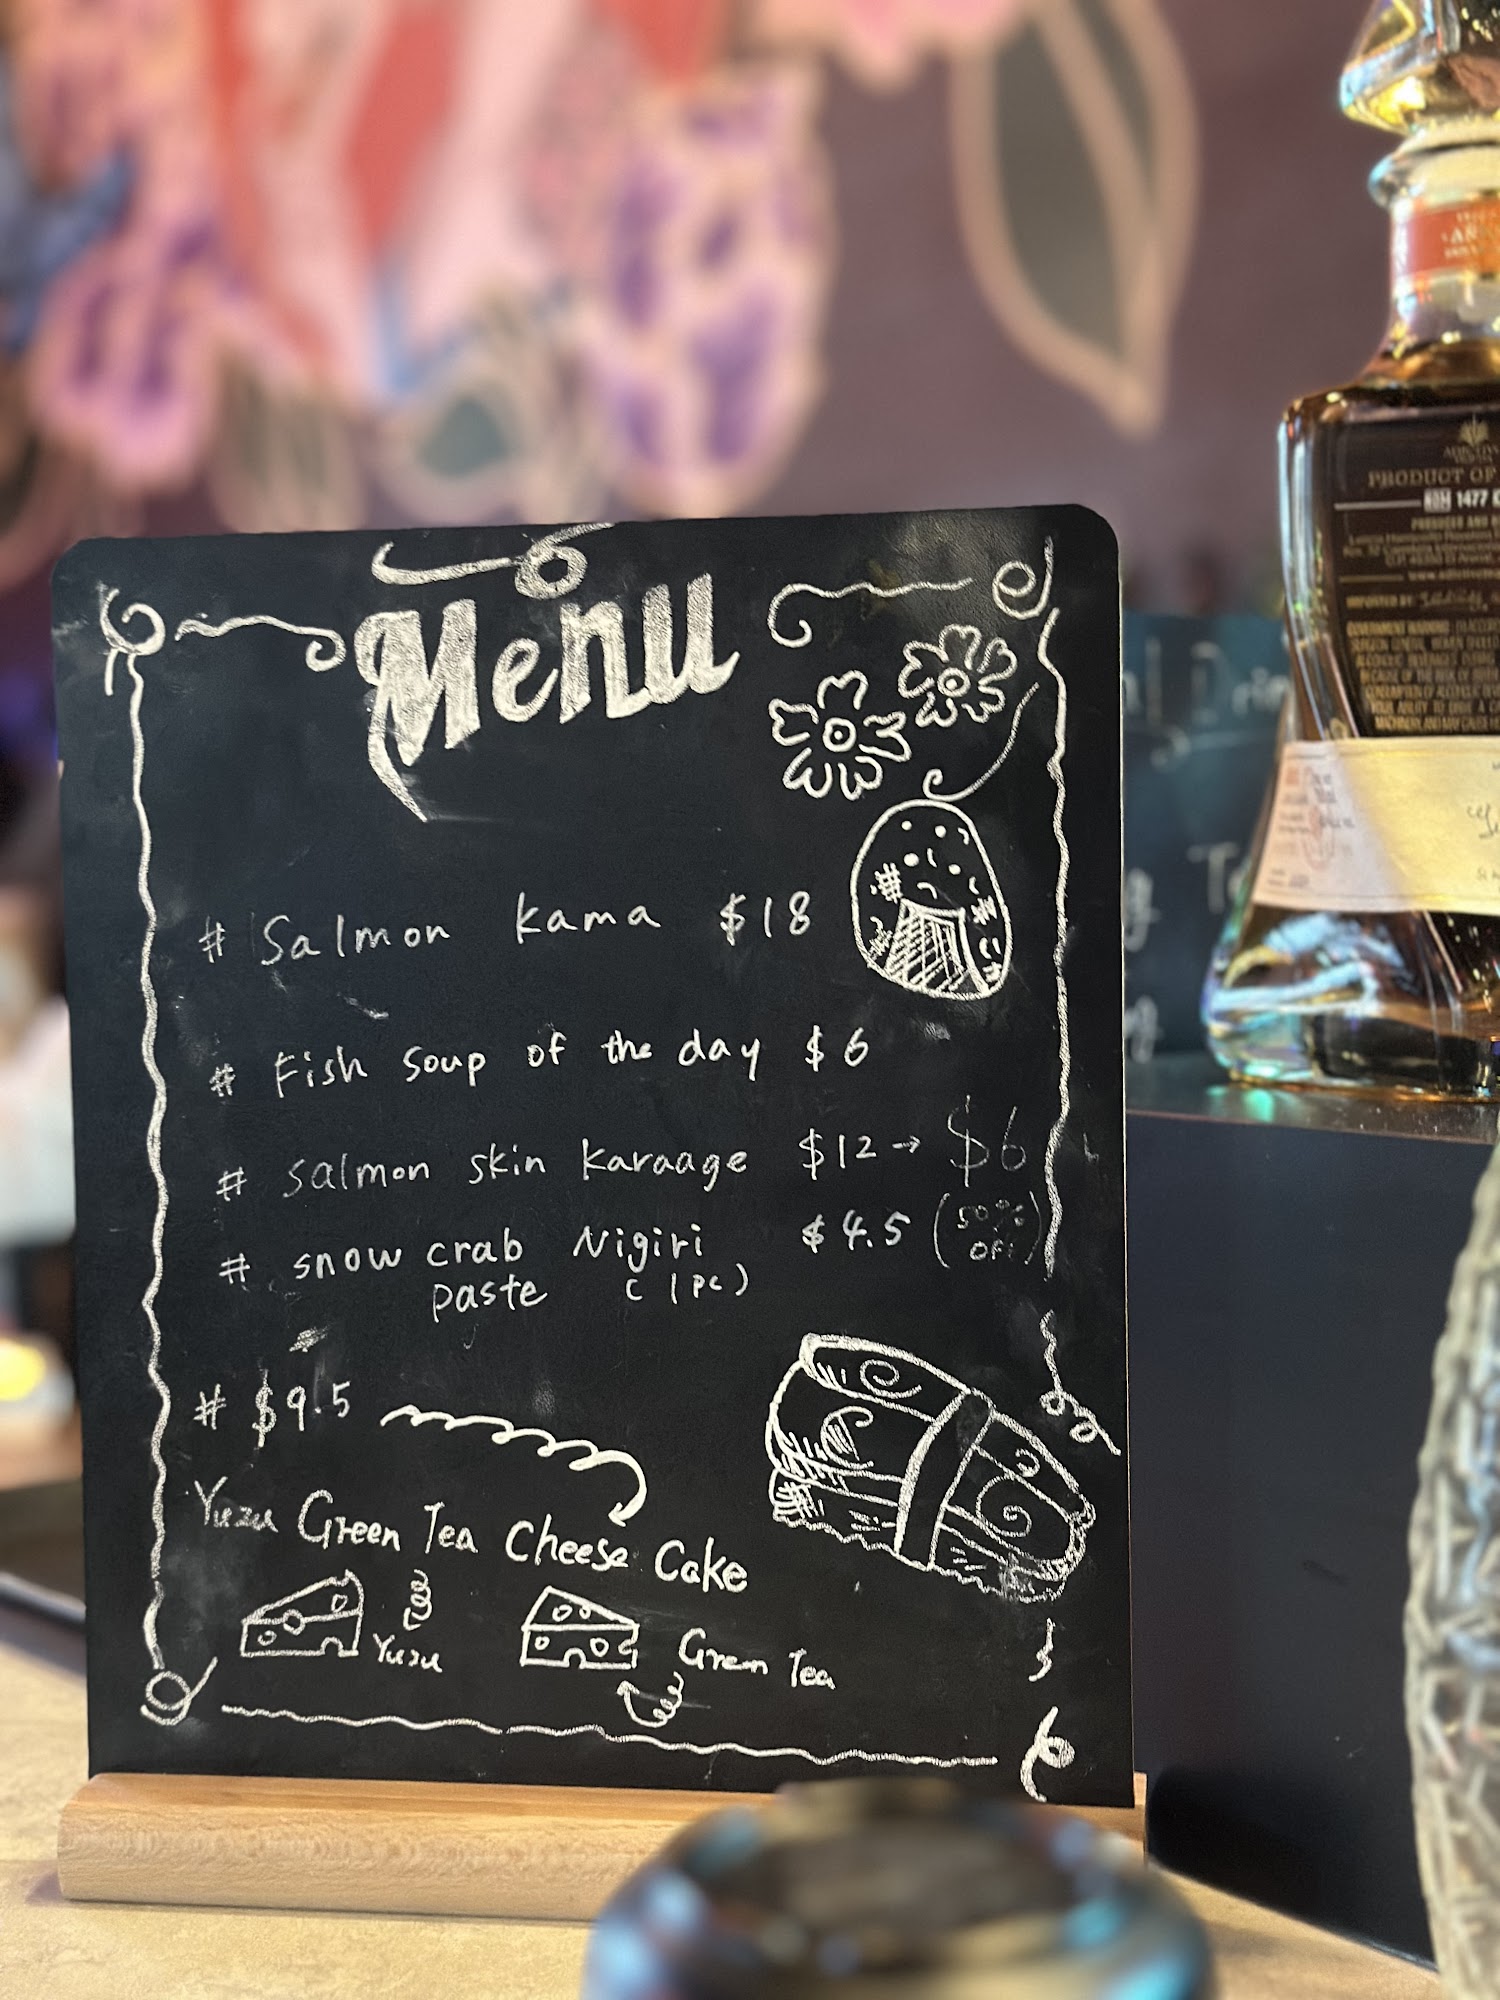 Menu
# Salmon Kama $18
# Fish Soup of the day $6
# salmon skin Karaage $12 → $6
# snow crab Nigiri $4.5 (50%
paste (1pc) OFF)
# $9.5
Yuzu Green Tea Cheese Cake
Yuzu
Green Tea
PRODUCT OF
NOM 1477
PRODUCED AND
IMPORTED BY:
GOVERNMENT WARNING: